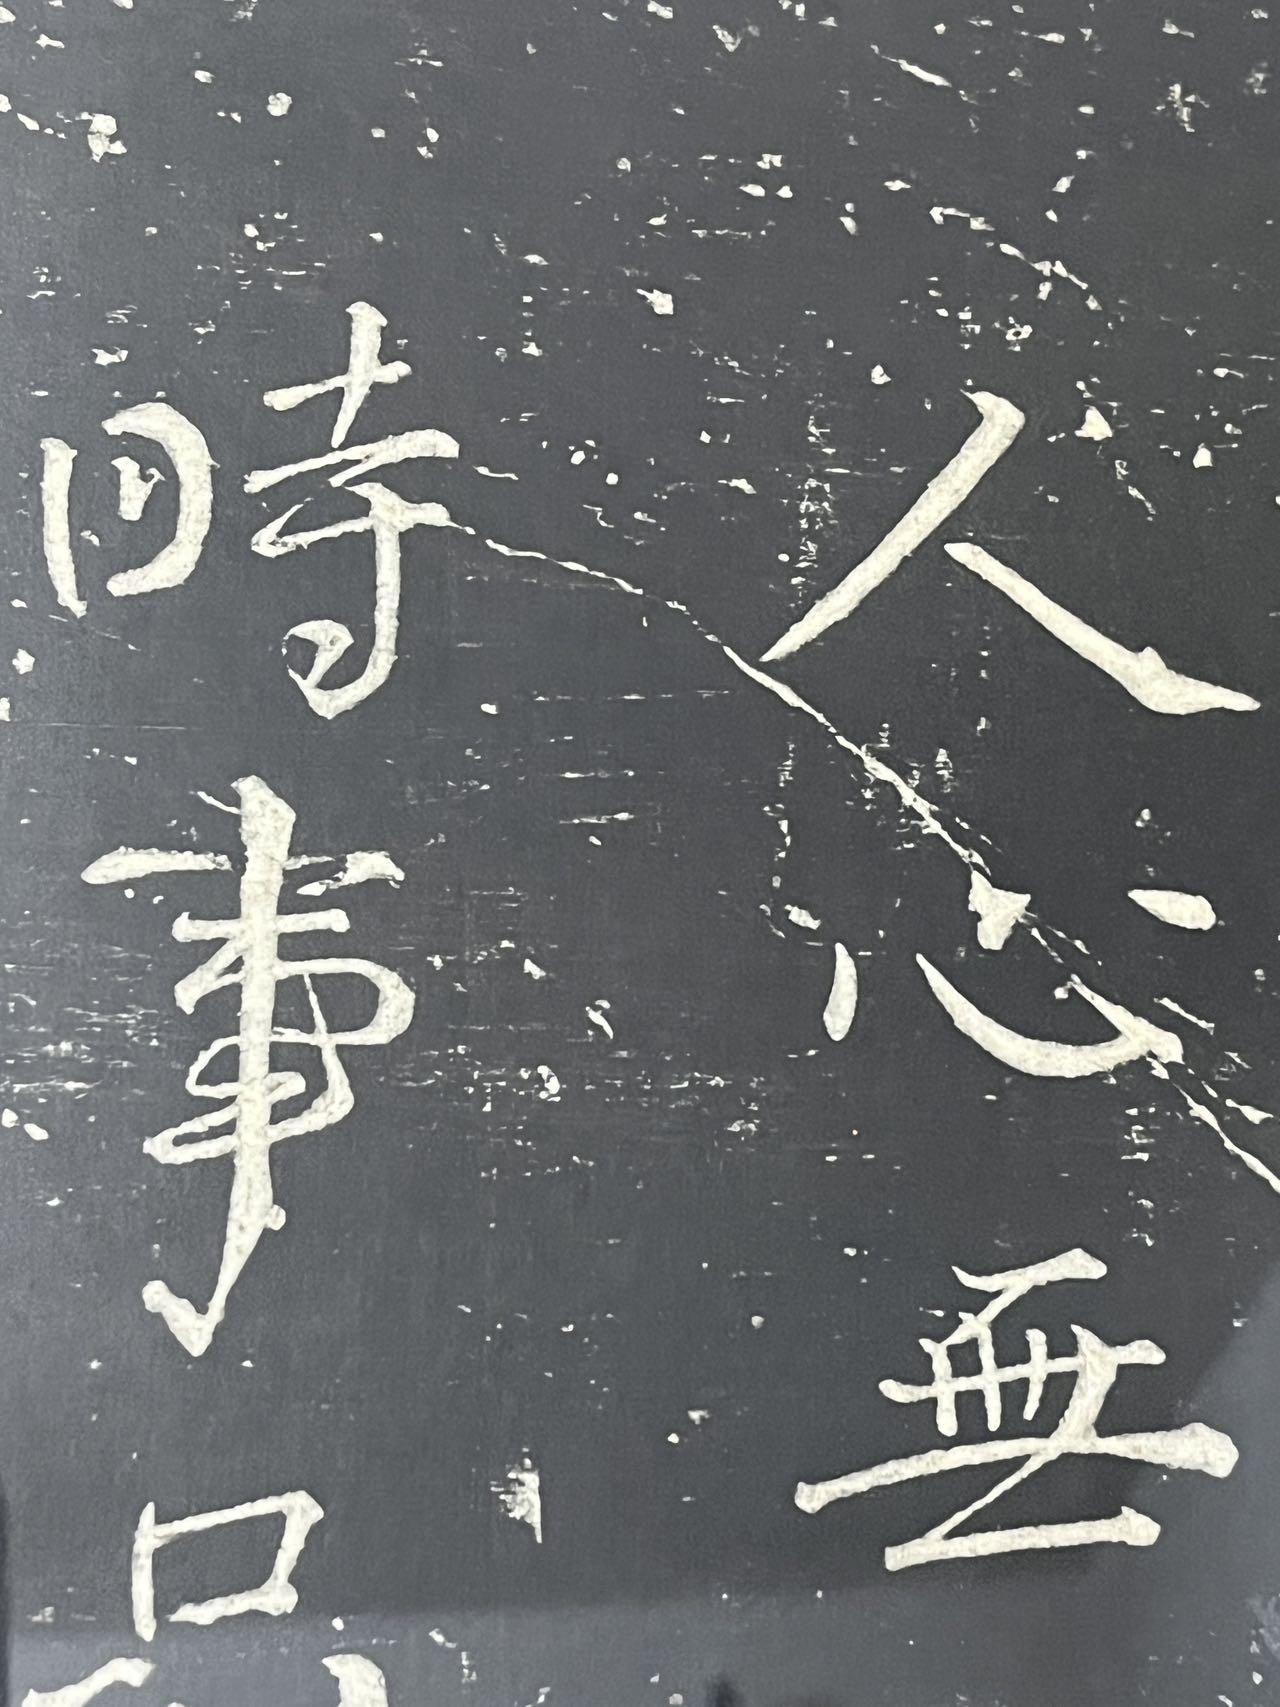 人心無
時事只